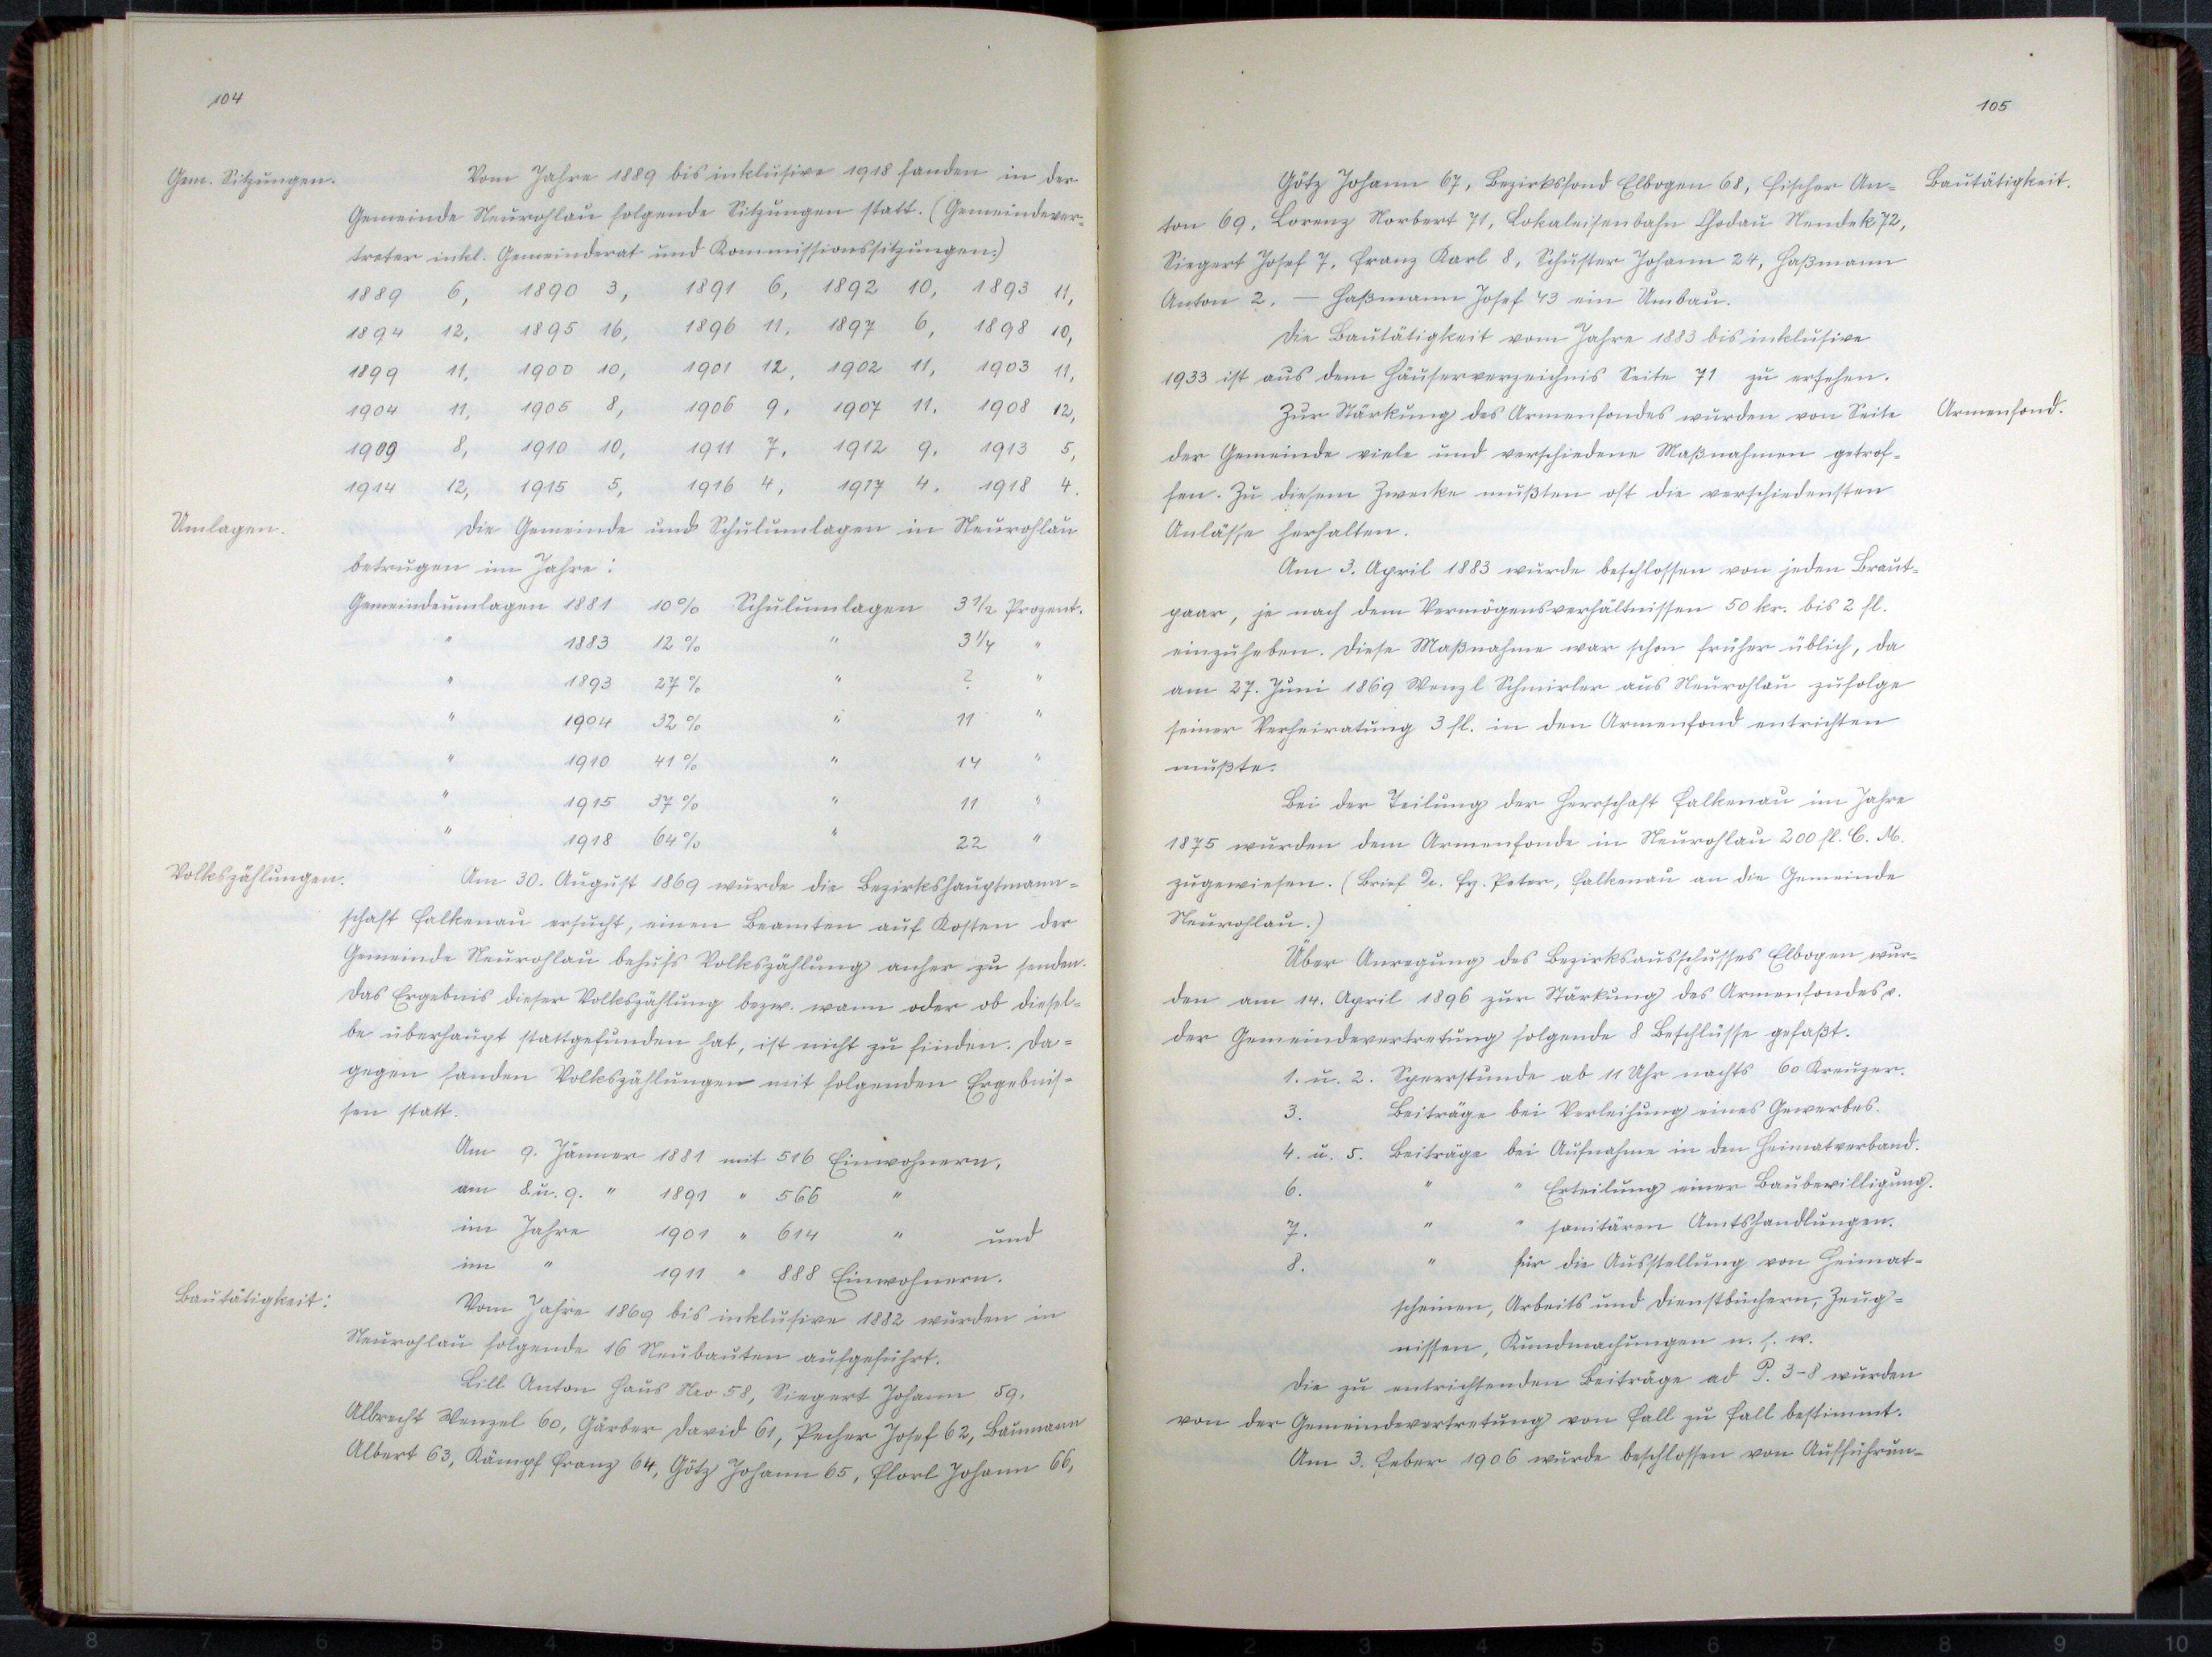 104
Gem. Sitzungen.
Vom Jahre 1889 bis inklusive 1918 fanden in der
Gemeinde Neurohlau folgende Sitzungen statt. (Gemeindever-
treter inkl. Gemeinderat und Kommissionssitzungen.)
1889 6, 1890 3, 1891 6, 1892 10, 1893 11,
1894 12, 1895 16, 1896 11, 1897 6, 1898 10,
1899 11, 1900 10, 1901 12, 1902 11, 1903 11,
1904 11, 1905 8, 1906 9, 1907 11, 1908 12,
1909 8, 1910 10, 1911 7, 1912 9, 1913 5,
1914 12, 1915 5, 1916 4, 1917 4, 1918 4.
Umlagen.
Die Gemeinde und Schulumlagen in Neurohlau
betrugen im Jahre:
Gemeindeumlagen 1881 10% Schulumlagen 3 1/2 Prozent.
" 1883 12% " 3 1/4 "
" 1893 27% " ? "
" 1904 32% " 11 "
" 1910 41% " 14 "
" 1915 37% " 11 "
" 1918 64% " 22 "
Volkszählungen.
Am 30. August 1869 wurde die Bezirkshauptmann-
schaft Falkenau ersucht, einen Beamten auf Kosten der
Gemeinde Neurohlau behufs Volkszählung anher zu senden.
Das Ergebnis dieser Volkszählung bezw. wann oder ob diesel-
be überhaupt stattgefunden hat, ist nicht zu finden. Da-
gegen fanden Volkszählungen mit folgenden Ergebnis-
sen statt.
Am 9. Jänner 1881 mit 516 Einwohnern,
am 8. u. 9. " 1891 " 566 "
im Jahre 1901 " 614 " und
im " 1911 " 888 Einwohnern.
Bautätigkeit:
Vom Jahre 1869 bis inklusive 1882 wurden in
Neurohlau folgende 16 Neubauten aufgeführt.
Lill Anton Haus Nro 58, Siegert Johann 59,
Albrecht Wenzel 60, Gärber David 61, Pecher Josef 62, Baumann
Albert 63, Kämpf Franz 64, Götz Johann 65, Florl Johann 66,
105
Götz Johann 67, Bezirksfond Elbogen 68, Fischer An-
Bautätigkeit.
ton 69, Lorenz Norbert 71, Lokaleisenbahn Chodau Neudek 72,
Siegert Josef 7, Franz Karl 8, Schuster Johann 24, Haßmann
Anton 2. — Haßmann Josef 43 ein Umbau.
Die Bautätigkeit vom Jahre 1883 bis inklusive
1933 ist aus dem Häuserverzeichnis Seite 71 zu ersehen.
Zur Stärkung des Armenfondes wurden von Seite
Armenfond.
der Gemeinde viele und verschiedene Maßnahmen getrof-
fen. Zu diesem Zwecke mußten oft die verschiedensten
Anlässe herhalten.
Am 3. April 1883 wurde beschlossen von jeden Braut-
paar, je nach dem Vermögensverhältnissen 50 kr. bis 2 fl.
einzuheben. Diese Maßnahme war schon früher üblich, da
am 27. Juni 1869 Wenzl Schmirler aus Neurohlau zufolge
seiner Verheiratung 3 fl. in den Armenfond entrichten
mußte.
Bei der Teilung der Herrschaft Falkenau im Jahre
1875 wurden dem Armenfonde in Neurohlau 200 fl. C. M.
zugewiesen. (Brief Dr. Fz. Peter, Falkenau an die Gemeinde
Neurohlau.)
Über Anregung des Bezirksausschusses Elbogen wur-
den am 14. April 1896 zur Stärkung des Armenfondes v.
der Gemeindevertretung folgende 8 Beschlüsse gefaßt.
1. u. 2. Sperrstunde ab 11 Uhr nachts 60 Kreuzer.
3. Beiträge bei Verleihung eines Gewerbes.
4. u. 5. Beiträge bei Aufnahme in den Heimatverband.
6. " " Erteilung einer Baubewilligung.
7. " " sanitären Amtshandlungen.
8. " für die Ausstellung von Heimat-
scheinen, Arbeits und Dienstbüchern, Zeug-
nissen, Kundmachungen u. s. w.
Die zu entrichtenden Beiträge ad P. 3-8 wurden
von der Gemeindevertretung von Fall zu Fall bestimmt.
Am 3. Feber 1906 wurde beschlossen von Aufführun-
8 7 6 5 4 3 2 1 2 3 4 5 6 7 8 9 10